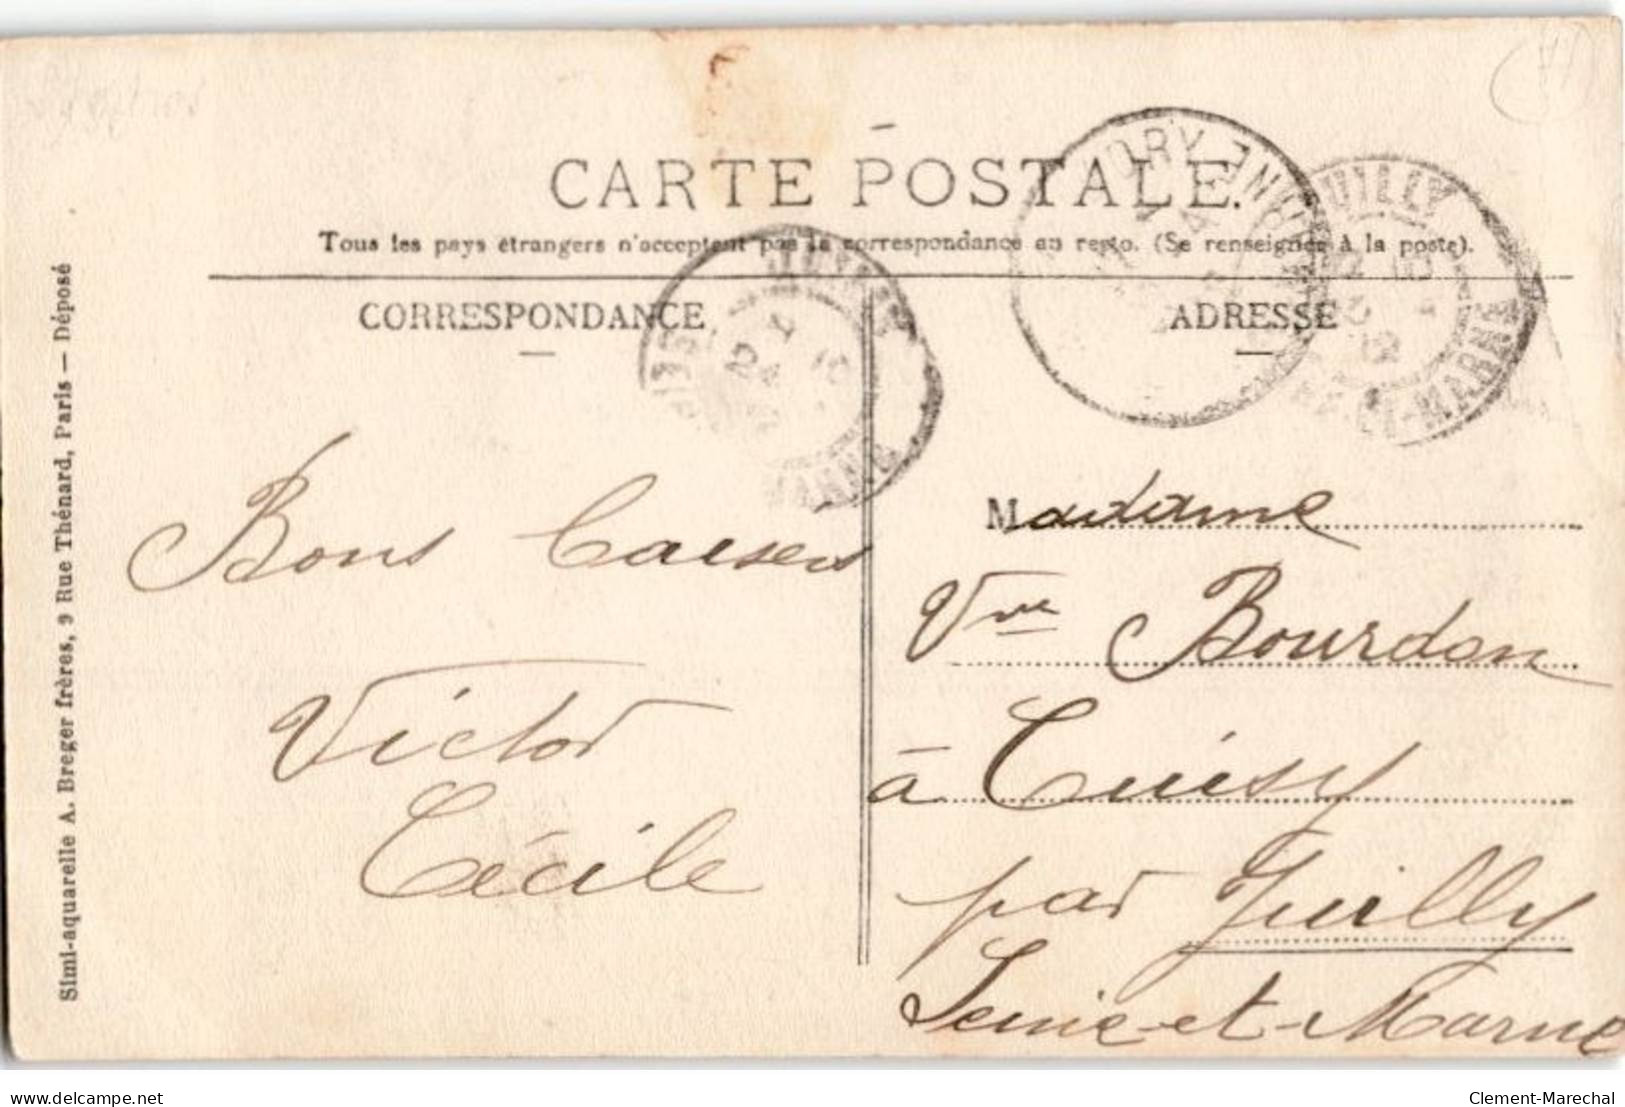 CARTE POSTALE.
Tous les pays étrangers n'acceptent pas la correspondance au recto. (Se renseigner à la poste).
CORRESPONDANCE
ADRESSE
JUILLY
SEINE-ET-MARNE
Simi-aquarelle A. Breger frères, 9 Rue Thénard, Paris — Déposé
Bons Baisers
Victor
Cécile
Madame
Vve Bourdon
à Cuisy
par Juilly
Seine-et-Marne
delcampe.net
Clement-Marechal